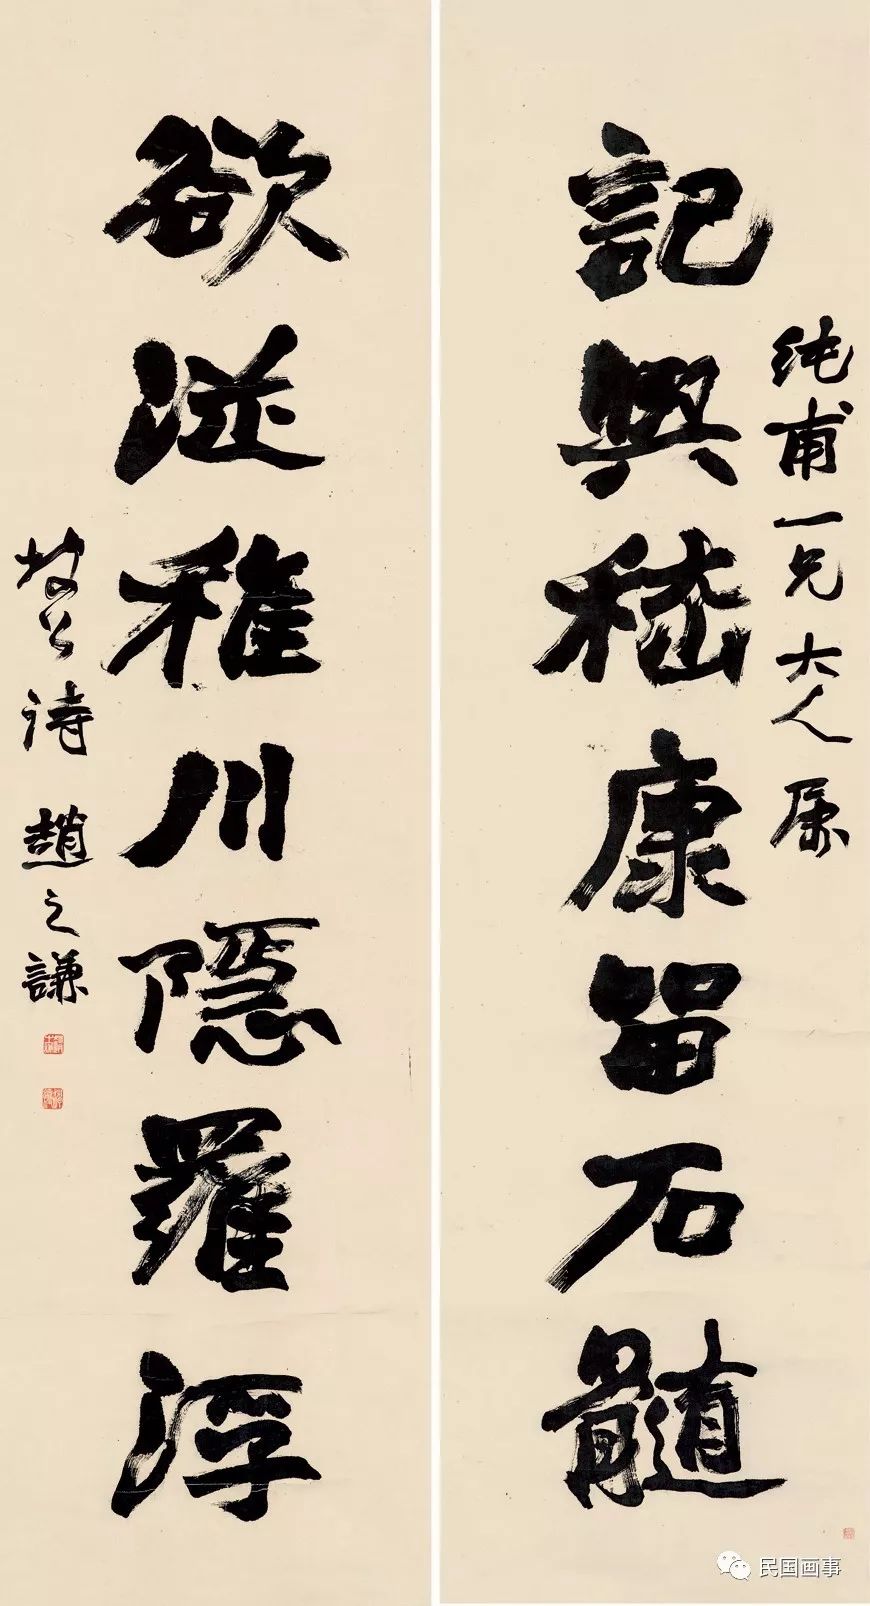 純甫一兄大人属
記與嵇康留石髓
欲從稚川隱羅浮
坡公詩 趙之謙
民国画事